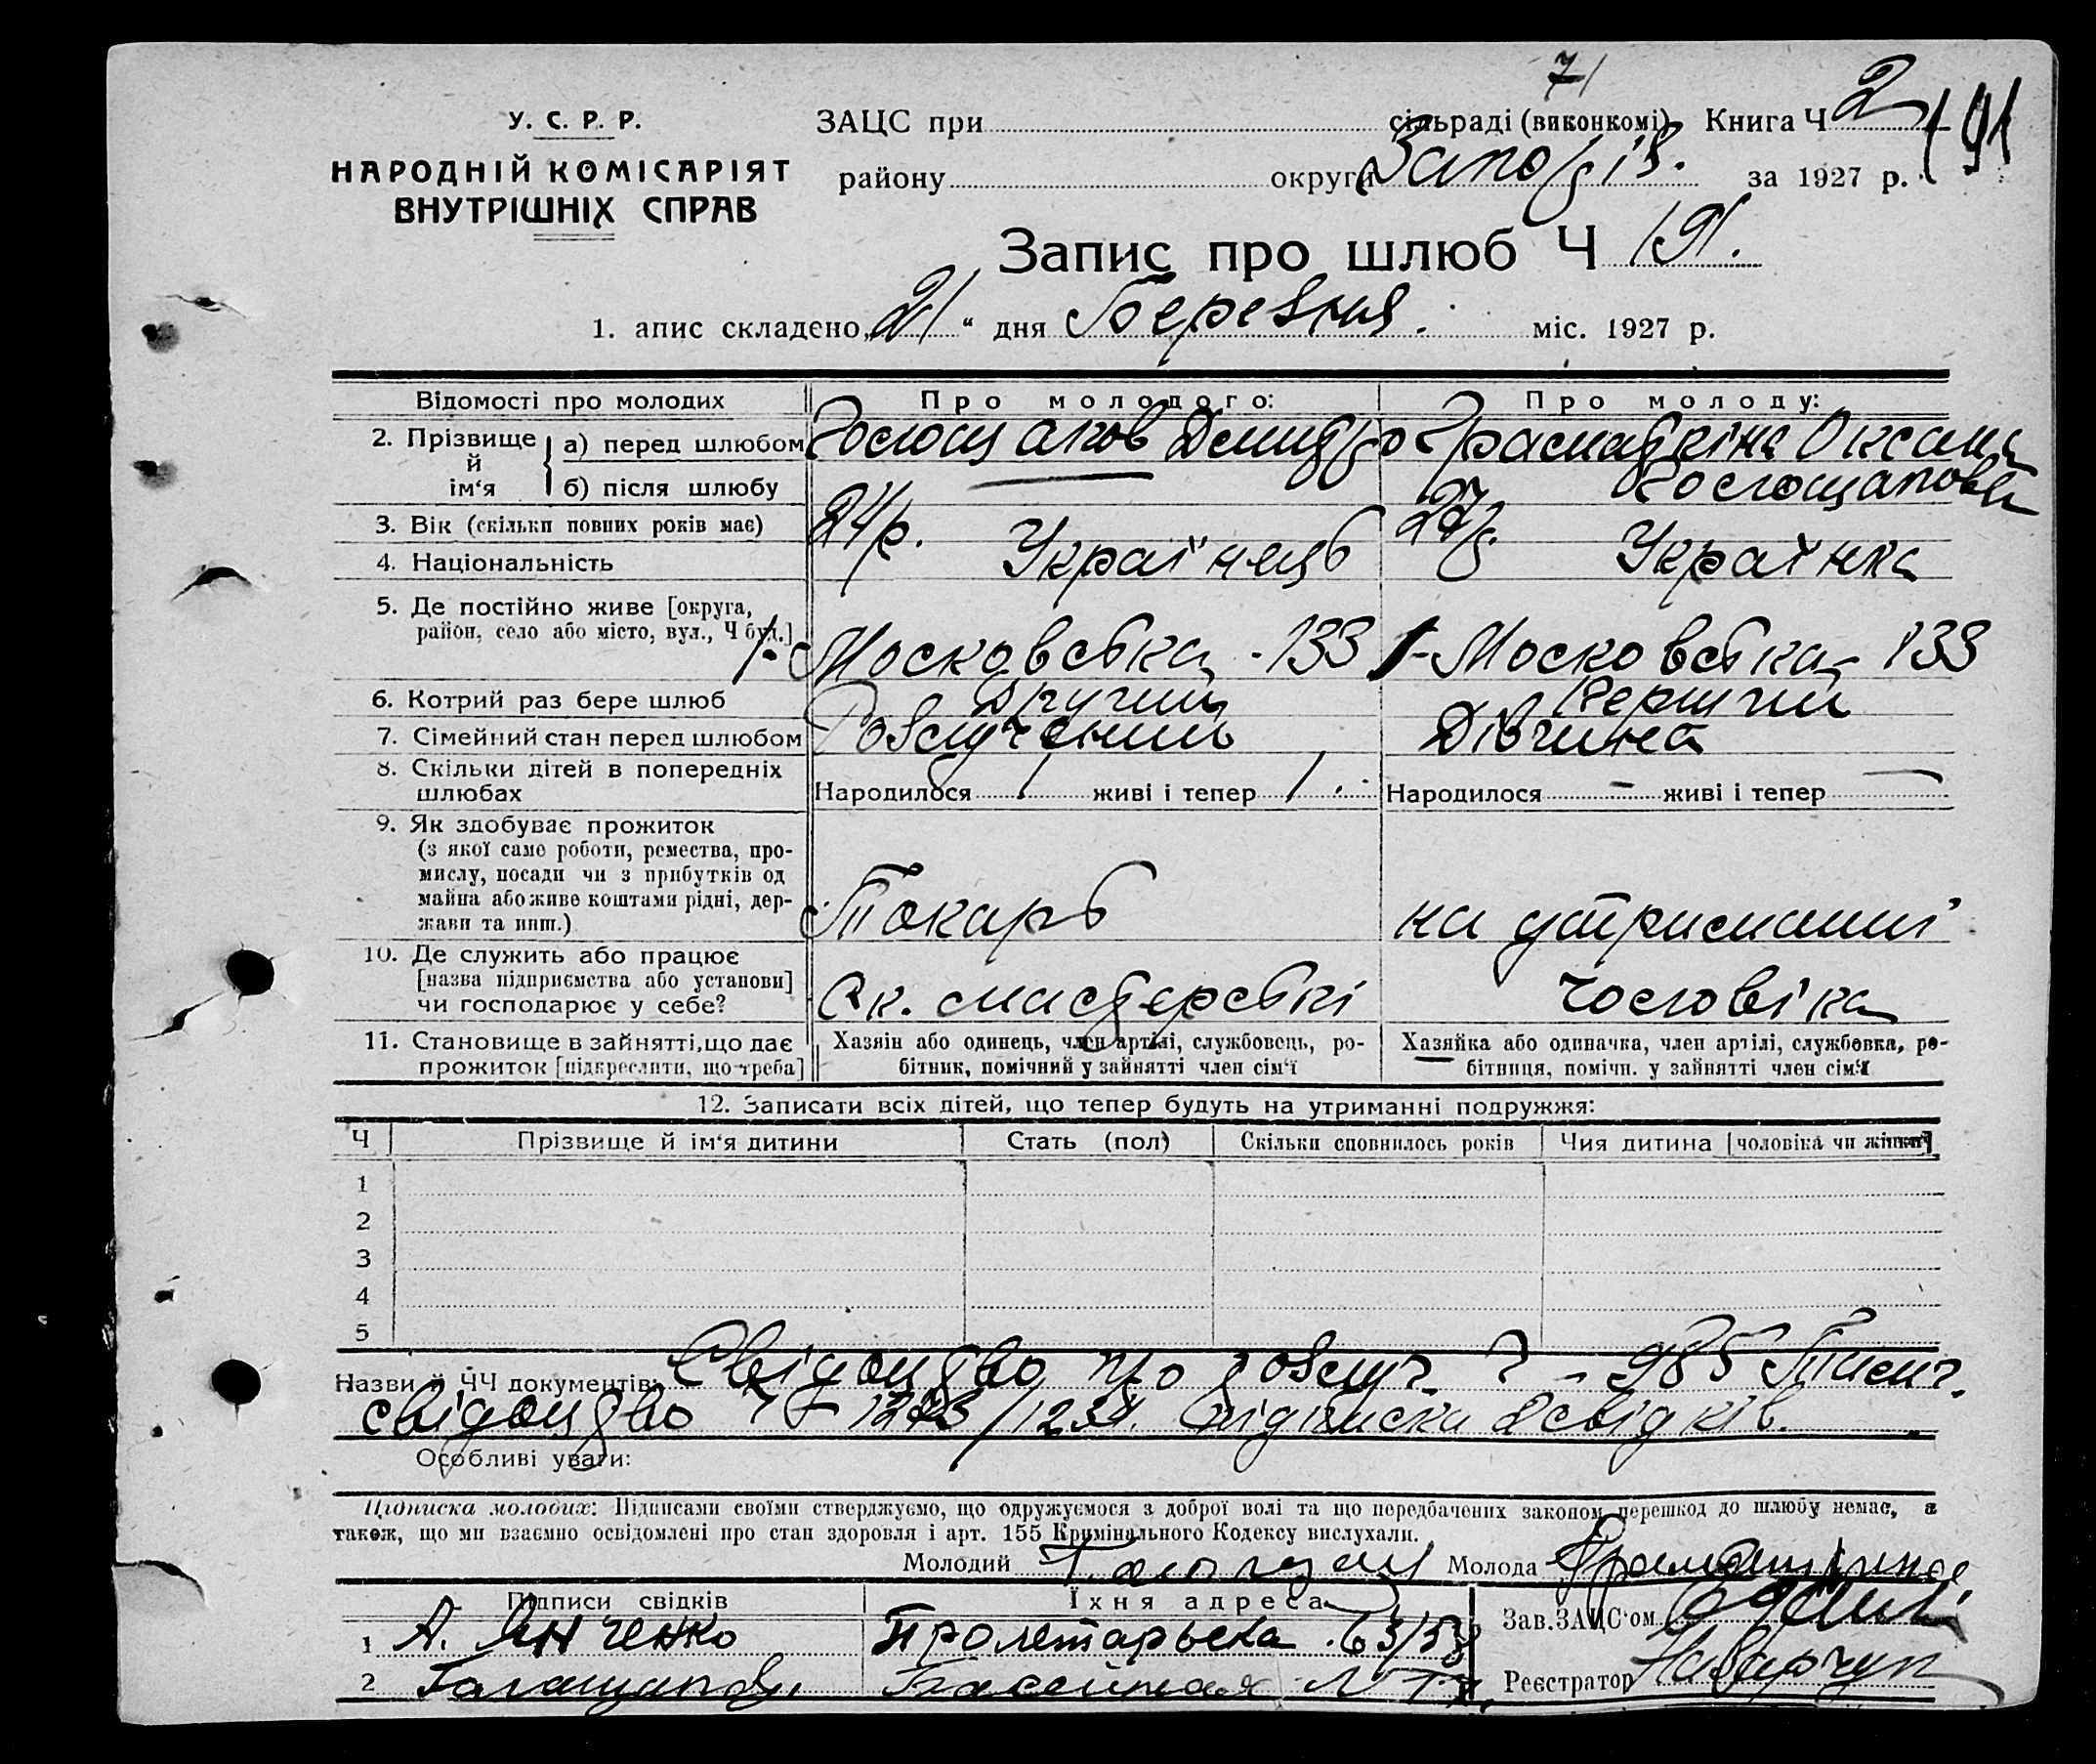 71
У. С. Р. Р.
НАРОДНІЙ КОМІСАРІЯТ
ВНУТРІШНІХ СПРАВ
ЗАЦС при сільраді (виконкомі) Книга Ч 2
191
району округи Запоріз. за 1927 р.
Запис про шлюб Ч 191.
1. апис складено „21“ дня Березня міс. 1927 р.
Відомості про молодих Про молодого: Про молоду:
2. Прізвище й ім‘я
а) перед шлюбом Дмитро Оксана
б) після шлюбу
3. Вік (скільки повних років має) 24 р.
4. Національність Українець Українка
5. Де постійно живе [округа,
район, село або місто, вул., Ч буд.] Московська 133 Московська 133
6. Котрий раз бере шлюб Другий Перший
7. Сімейний стан перед шлюбом Розлучений Дівчина
8. Скільки дітей в попередніх
шлюбах Народилося 1 живі і тепер 1. Народилося - живі і тепер -
9. Як здобуває прожиток
(з якої само роботи, ремества, про-
мислу, посади чи з прибутків од
майна або живе коштами рідні, дер-
жави та инш.) Токарь на утриманні
10. Де служить або працює
[назва підприємства або установи]
чи господарює у себе? Ок. мастерські чоловіка
11. Становище в зайнятті, що дає
прожиток [підкреслити, що треба]
Хазяін або одинець, член артілі, службовець, ро-
бітник, помічний у зайнятті член сім‘ї
Хазяйка або одиначка, член артілі, службовка, ро-
бітниця, помічн. у зайнятті член сім‘ї
12. Записати всіх дітей, що тепер будуть на утриманні подружжя:
Ч Прізвище й ім‘я дитини Стать (пол) Скільки сповнилось років Чия дитина [чоловіка чи жінки]
1
2
3
4
5
Назви й ЧЧ документів: Свідоцтво про розлуч. Ч 985
свідоцтво підписки 2 свідків.
Особливі уваги:
Підписка молодих: Підписами своїми стверджуємо, що одружуємося з доброї волі та що передбачених законом перешкод до шлюбу немає, а
також, що ми взаємно освідомлені про стан здоровля і арт. 155 Кримінального Кодексу вислухали.
Молодий Молода
Підписи свідків Їхня адреса
1 А. Янченко Пролетарьска
2 Басейная
Зав. ЗАЦС‘ом
Реєстратор